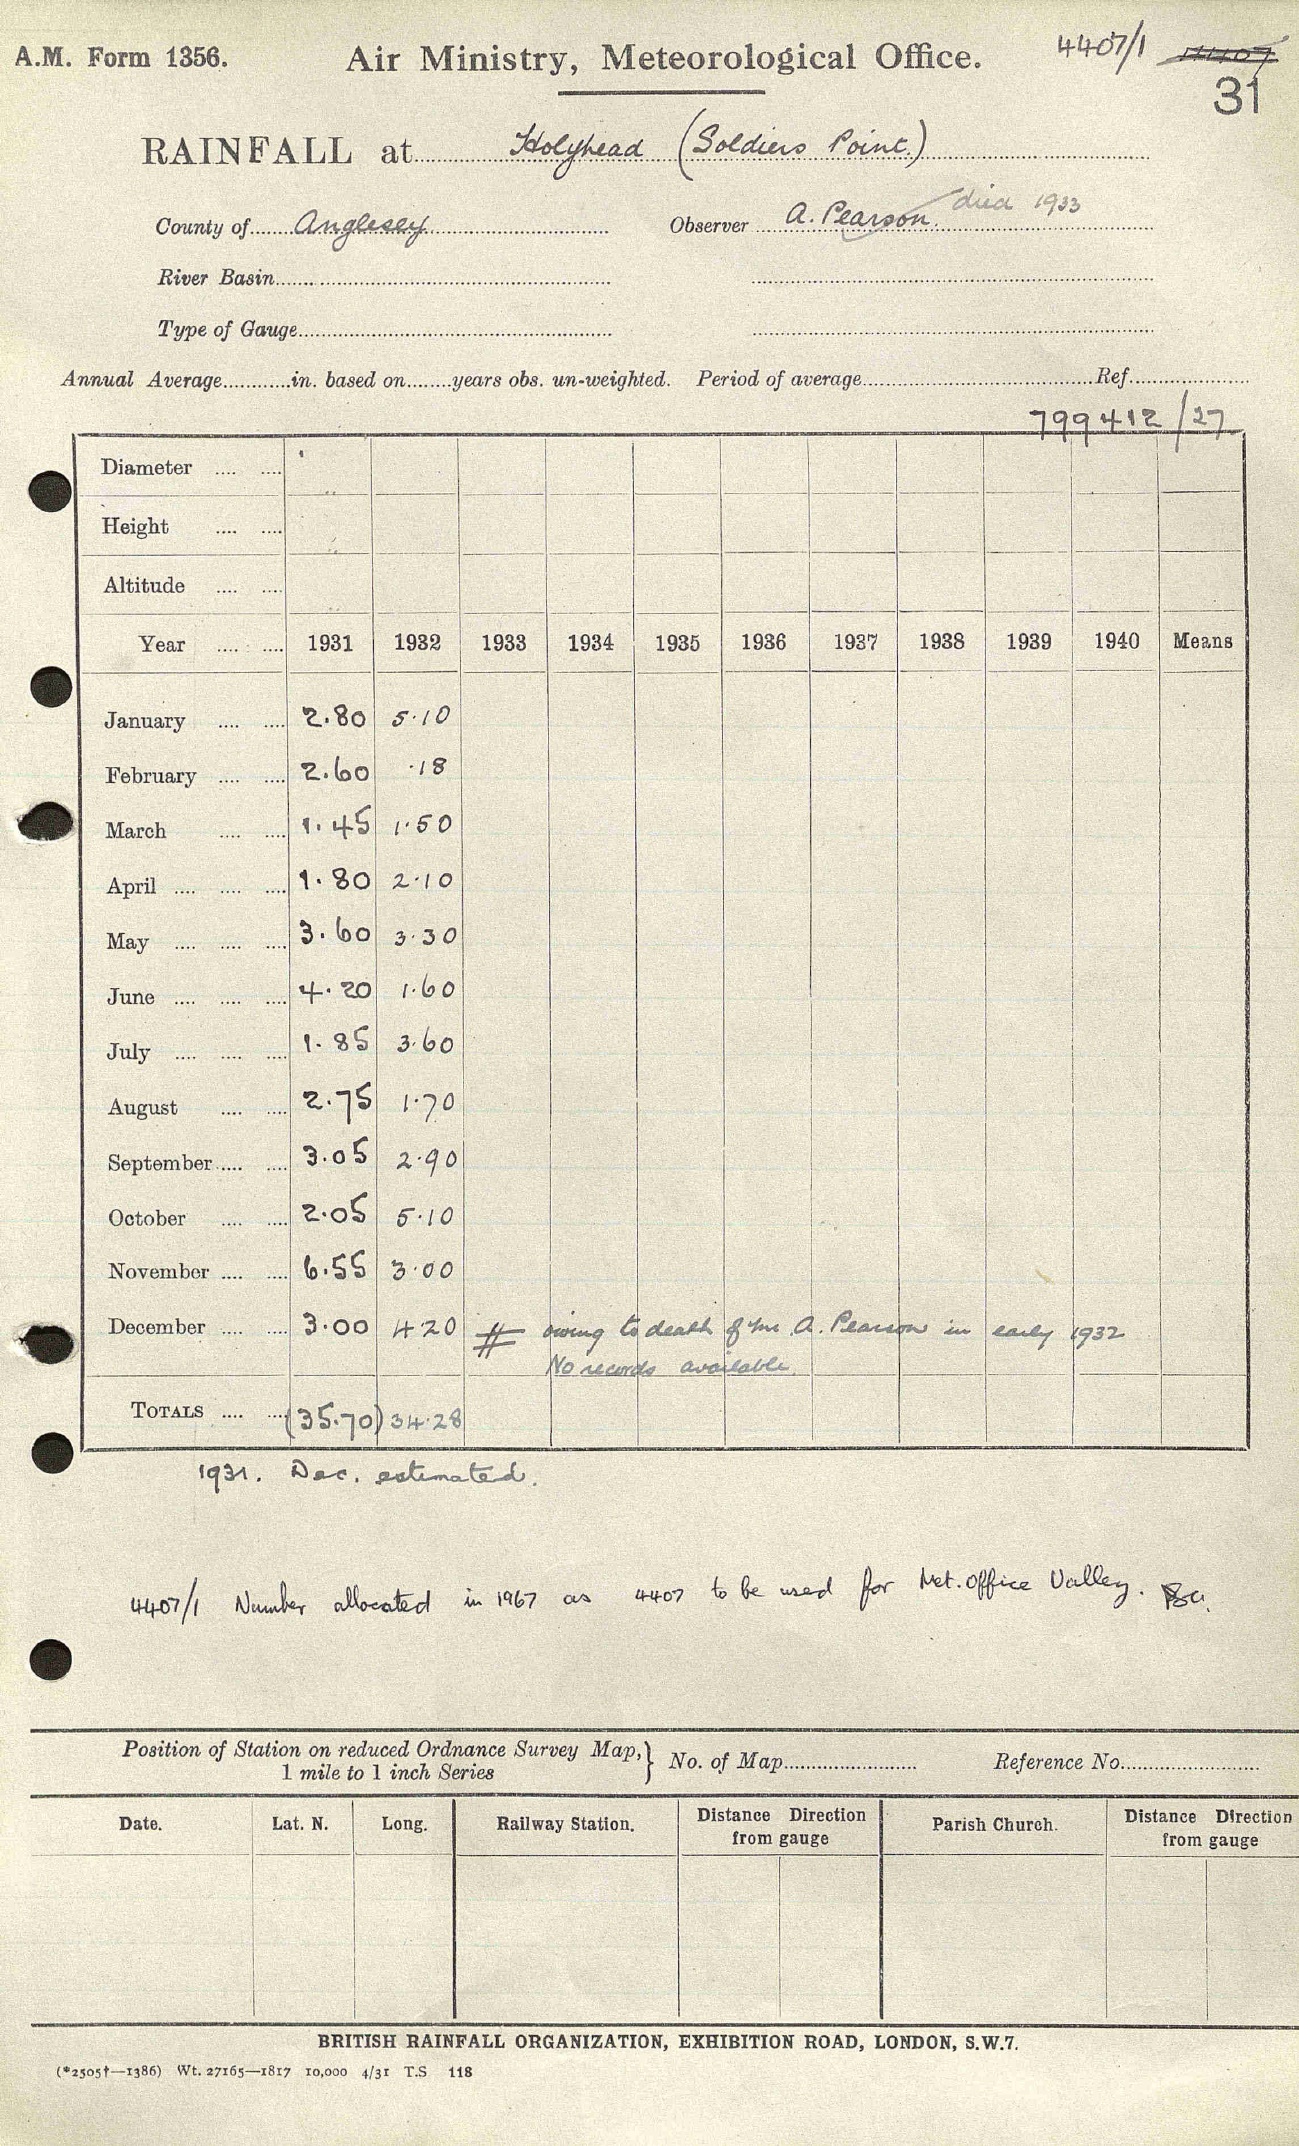 A.M. Form 1356. Air Ministry, Meteorological Office. 4407/1 4407
31
RAINFALL at Holyhead (Soldiers Point.)
County of Anglesey Observer A. Pearson. died 1933
River Basin
Type of Gauge
Annual Average in. based on years obs. un-weighted. Period of average Ref.
799412/27
Diameter
Height
Altitude
Year 1931 1932 1933 1934 1935 1936 1937 1938 1939 1940 Means
January 2.80 5.10
February 2.60 .18
March 1.45 1.50
April 1.80 2.10
May 3.60 3.30
June 4.20 1.60
July 1.85 3.60
August 2.75 1.70
September 3.05 2.90
October 2.05 5.10
November 6.55 3.00
December 3.00 4.20 # owing to death of Mr. A. Pearson in early 1932
No records available.
TOTALS (35.70) 34.28
1931. Dec. estimated.
4407/1 Number allocated in 1967 as 4407 to be used for Met. Office Valley.
Position of Station on reduced Ordnance Survey Map, } No. of Map Reference No.
1 mile to 1 inch Series
Date. Lat. N. Long. Railway Station. Distance Direction Parish Church. Distance Direction
from gauge from gauge
BRITISH RAINFALL ORGANIZATION, EXHIBITION ROAD, LONDON, S.W.7.
(*2505†—1386) Wt. 27165—1817 10,000 4/31 T.S 118